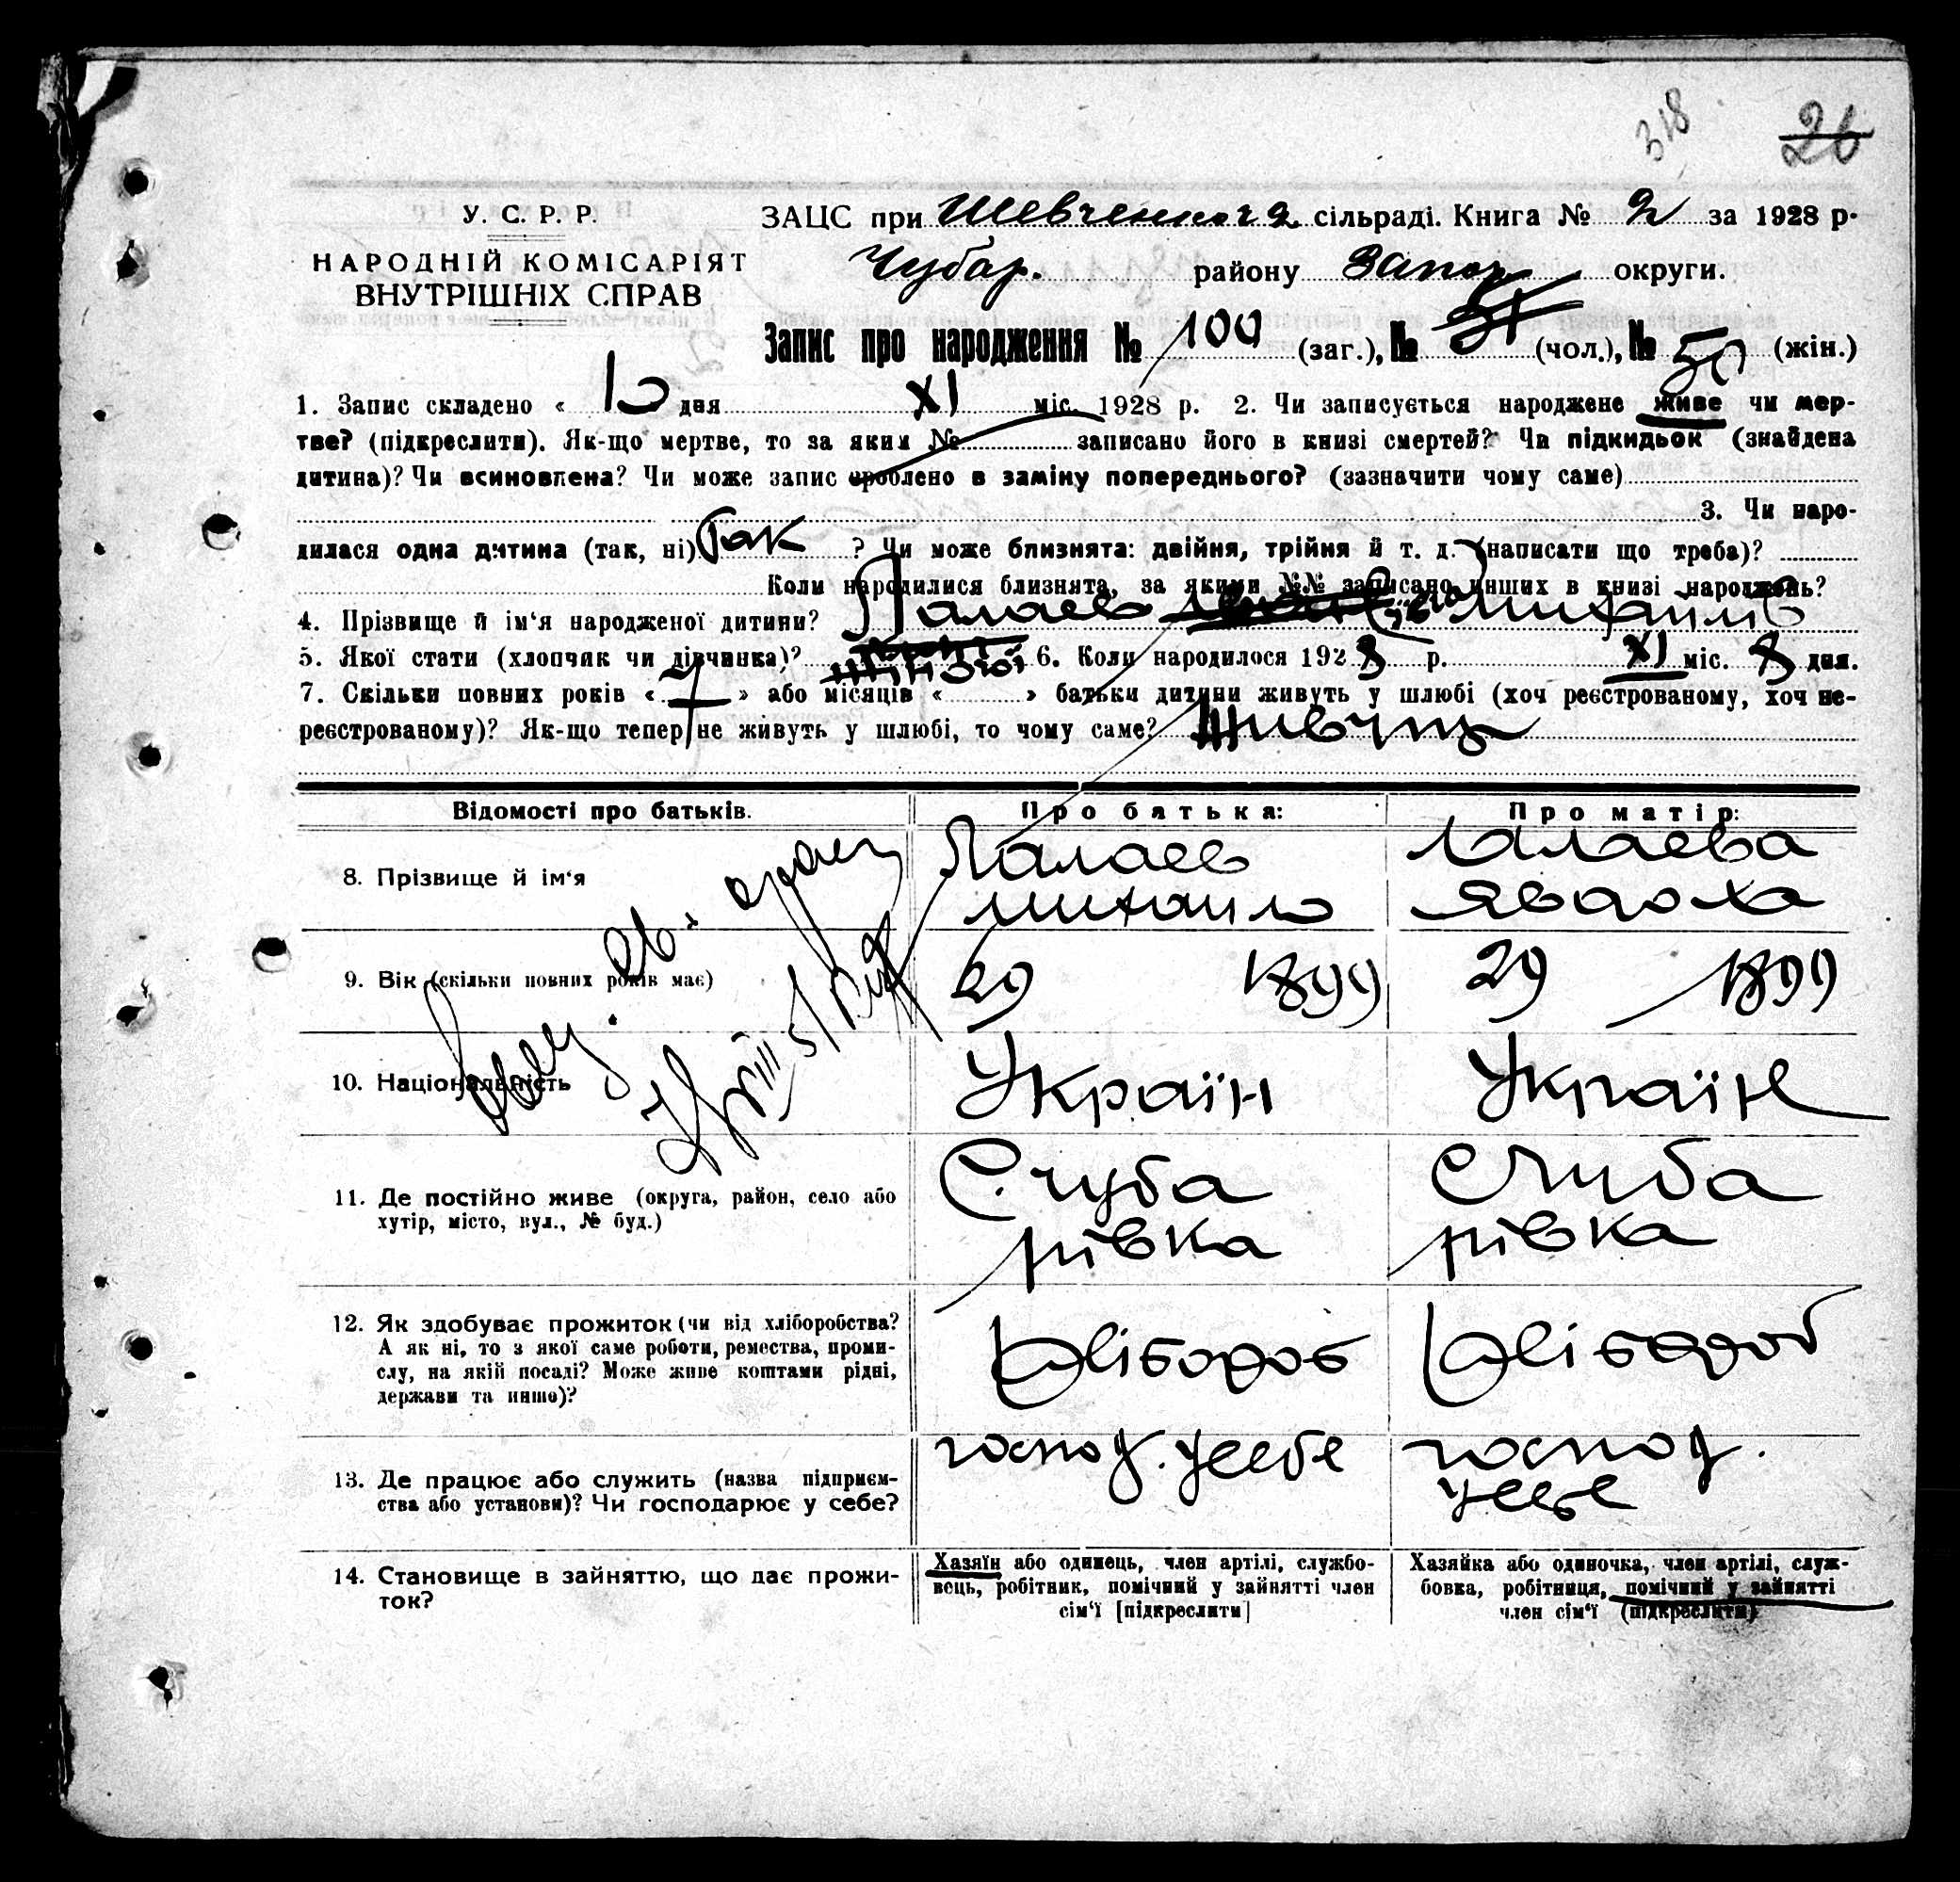 318
26
У. С. Р. Р.
НАРОДНІЙ КОМІСАРІЯТ
ВНУТРІШНІХ СПРАВ
ЗАЦС при Шевченков сільраді. Книга № 2 за 1928 р.
Чубар. району Запор округи.
Запис про народження № 100 (заг.), № 51 (чол.), № 50 (жін.)
1. Запис складено « 10 дня XI міс. 1928 р. 2. Чи записується народжене живе чи мер-
тве? (підкреслити). Як-що мертве, то за яким № записано його в книзі смертей? Чи підкидьок (знайдена
дитина)? Чи всиновлена? Чи може запис зроблено в заміну попереднього? (зазначити чому саме)
3. Чи наро-
дилася одна дитина (так, ні) Так ? Чи може близнята: двійня, трійня й т. д. (написати що треба)?
Коли народилися близнята, за якими №№ записано инших в книзі народжень?
4. Прізвище й ім‘я народженої дитини? Палаев Михайлів
5. Якої стати (хлопчик чи дівчинка)? 6. Коли народилося 1928 р. XI міс. 8 дня.
7. Скільки повних років « » або місяців « » батьки дитини живуть у шлюбі (хоч реєстрованому, хоч не-
реєстрованому)? Як-що тепер не живуть у шлюбі, то чому саме? Живуть
Відомості про батьків.
Про батька:
Про матір:
8. Прізвище й ім‘я
Палаев
Михаило
Палаева
Явдоха
9. Вік (скільки повних років має)
29 1899
29 1899
10. Національність
Україн
Україн
11. Де постійно живе (округа, район, село або
хутір, місто, вул., № буд.)
С. Чуба
рівка
С Чуба
рівка
12. Як здобуває прожиток (чи від хліборобства?
А як ні, то з якої саме роботи, ремества, проми-
слу, на якій посаді? Може живе коштами рідні,
держави та инше)?
Хлібороб
Хлібороб
13. Де працює або служить (назва підприєм-
ства або установи)? Чи господарює у себе?
господ. усебе
господ.
усебе
14. Становище в зайняттю, що дає прожи-
ток?
Хазяїн або одинець, член артілі, службо-
вець, робітник, помічний у зайнятті член
сім‘ї [підкреслити]
Хазяйка або одиночка, член артілі, служ-
бовка, робітниця, помічний у зайнятті
член сім‘ї (підкреслити)